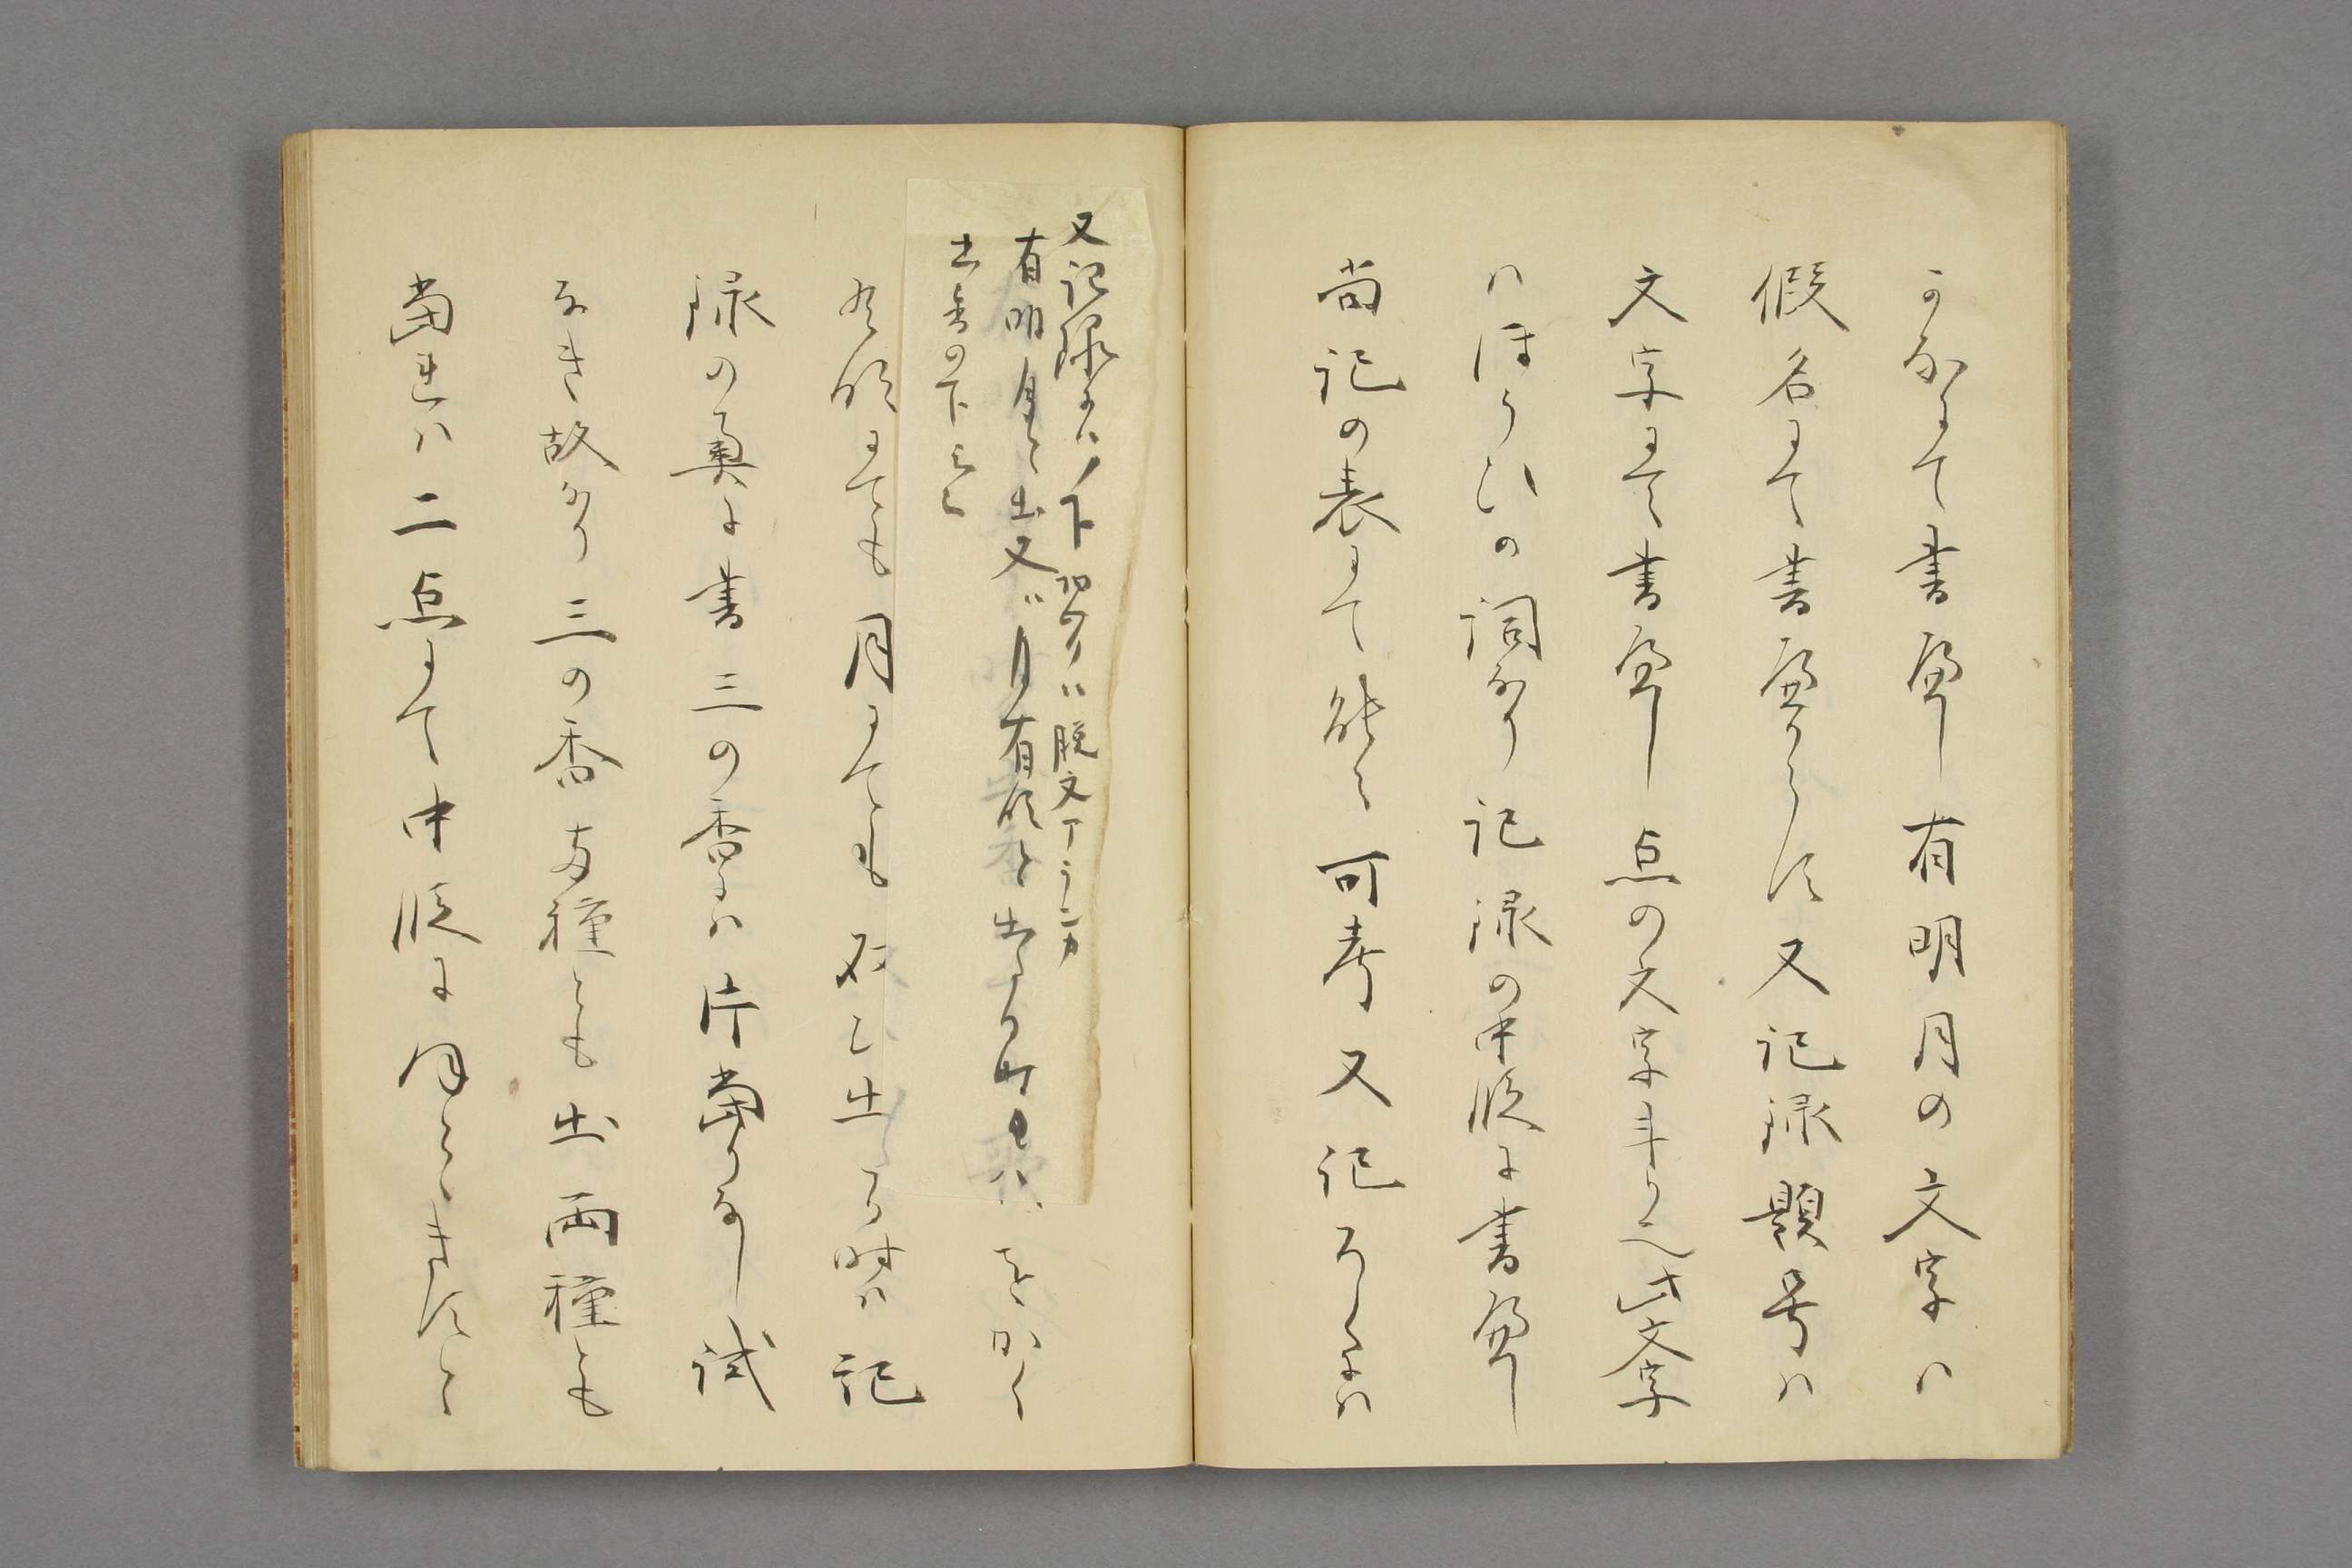 かなにて書へし有明月の文字ハ
假名にて書へからす又記録題号ハ
文字にて書へし点の文字斗らへ此文字
ハほうひの詞なり記録の中段に書へし
尚記の表にて能々可考又記ろくにハ
又記録にハノ下認ワリニ脱文アランカ
有明月と出又ハ月有明と出
出香の下ニ
をかく
有明にても月にても不出る時ハ記
録の奥に書三の香にハ片當りなし試
なき故なり三の香両種とも出両種とも
當れハ二点にて中段に